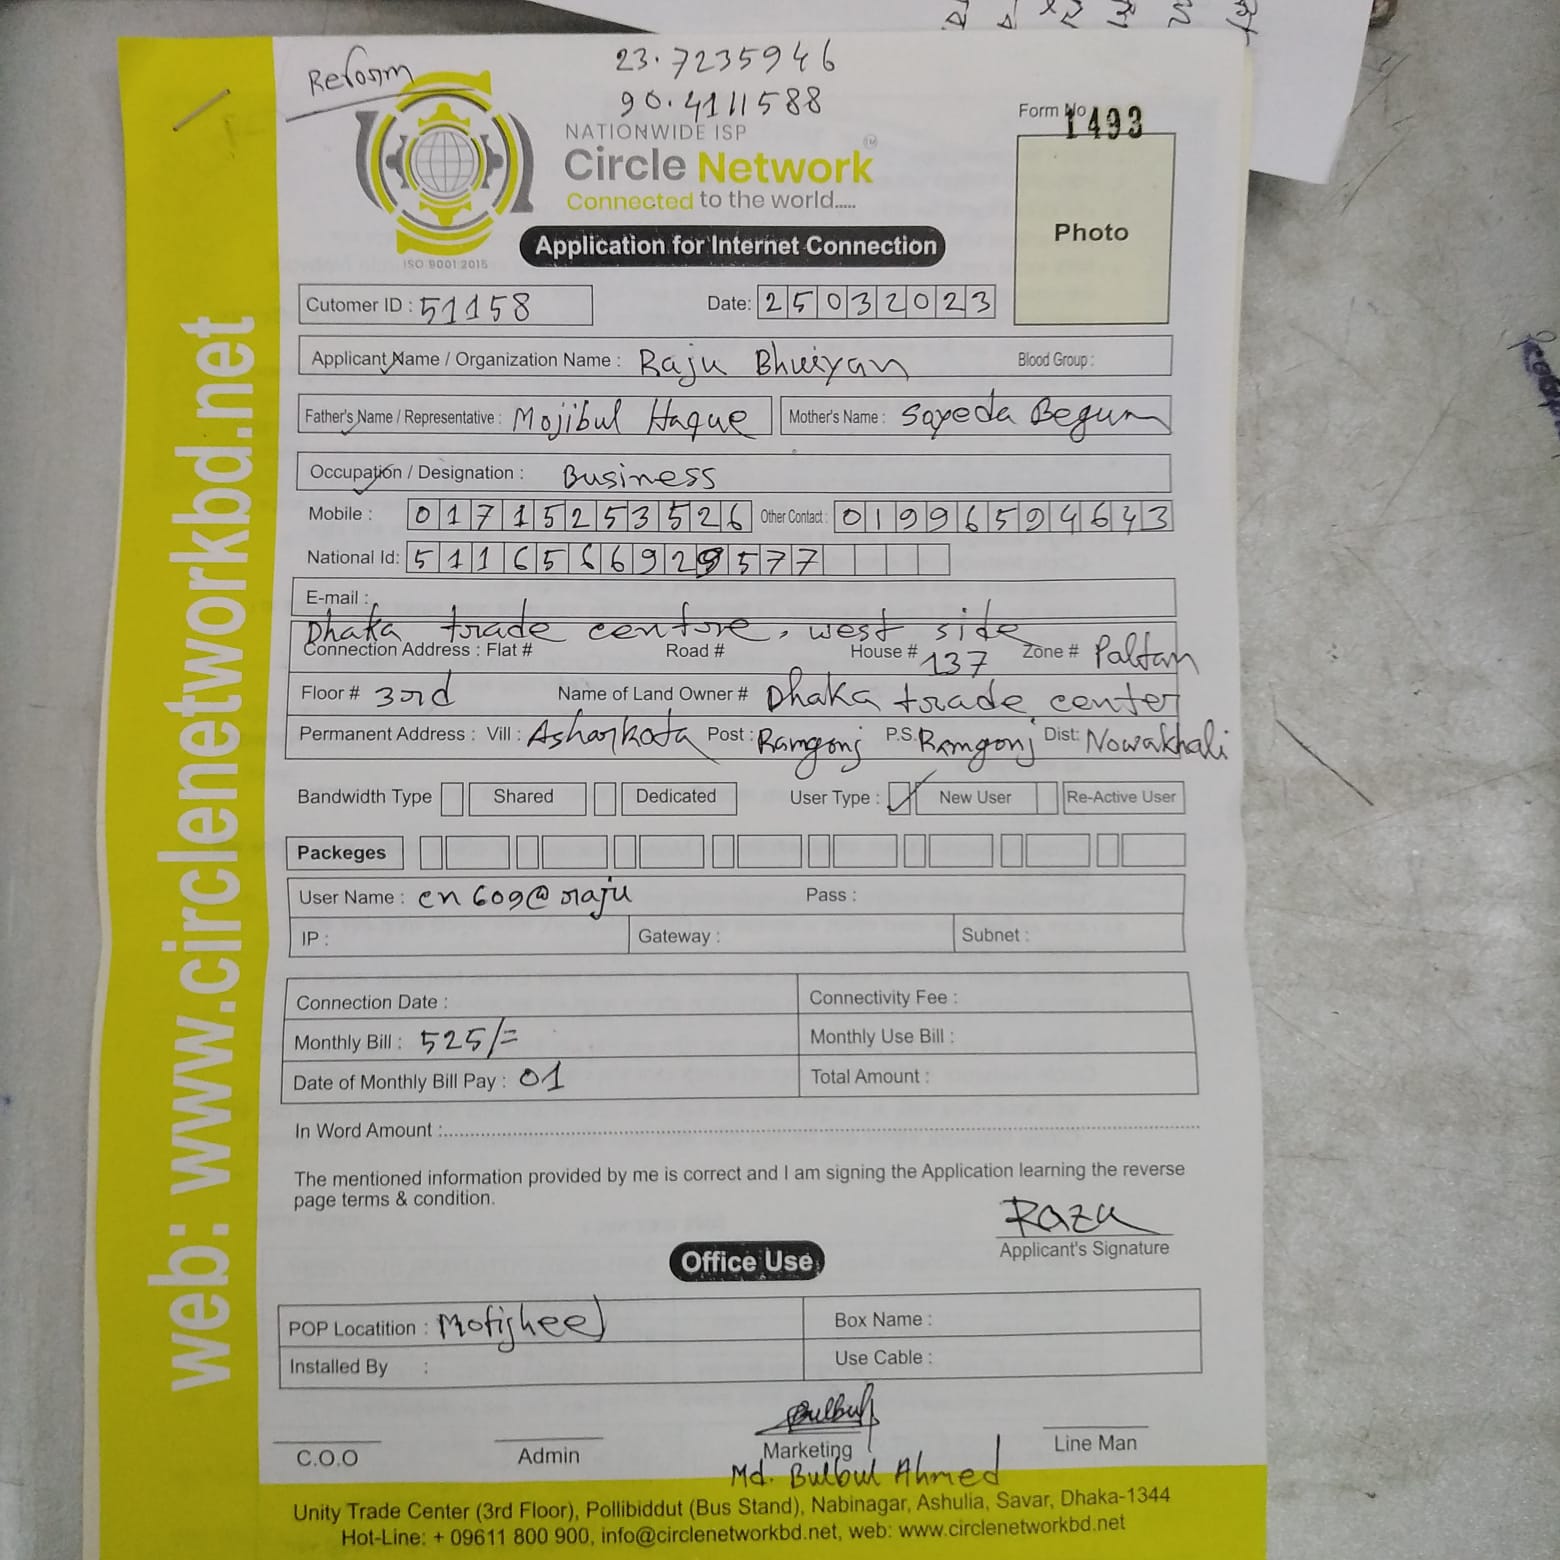 Reform
23.7235946
90.4111588
Form No 1493
NATIONWIDE ISP
Circle Network TM
Connected to the world.....
ISO 9001:2015
Application for Internet Connection
Photo
Cutomer ID : 51158 Date: 25032023
Applicant Name / Organization Name : Raju Bhuiyan Blood Group :
Father's Name / Representative : Mojibul Haque Mother's Name : Sayeda Begum
Occupation / Designation : Business
Mobile : 01715253526 Other Contact : 01996594643
National Id: 5116566929577
E-mail :
Dhaka trade centre, west side
Connection Address : Flat # Road # House # 137 Zone # Paltan
Floor # 3rd Name of Land Owner # Dhaka trade center
Permanent Address : Vill : Asharkota Post : Ramgonj P.S. Ramgonj Dist: Nowakhali
Bandwidth Type Shared Dedicated User Type : New User Re-Active User
Packeges
User Name : cn609@raju Pass :
IP : Gateway : Subnet :
Connection Date : Connectivity Fee :
Monthly Bill : 525/= Monthly Use Bill :
Date of Monthly Bill Pay : 01 Total Amount :
In Word Amount :
The mentioned information provided by me is correct and I am signing the Application learning the reverse
page terms & condition.
Raza
Applicant's Signature
Office Use
POP Locatition : Motijheel Box Name :
Installed By : Use Cable :
Bulbul
C.O.O Admin Marketing Line Man
Md. Bulbul Ahmed
Unity Trade Center (3rd Floor), Pollibiddut (Bus Stand), Nabinagar, Ashulia, Savar, Dhaka-1344
Hot-Line: + 09611 800 900, info@circlenetworkbd.net, web: www.circlenetworkbd.net
web: www.circlenetworkbd.net